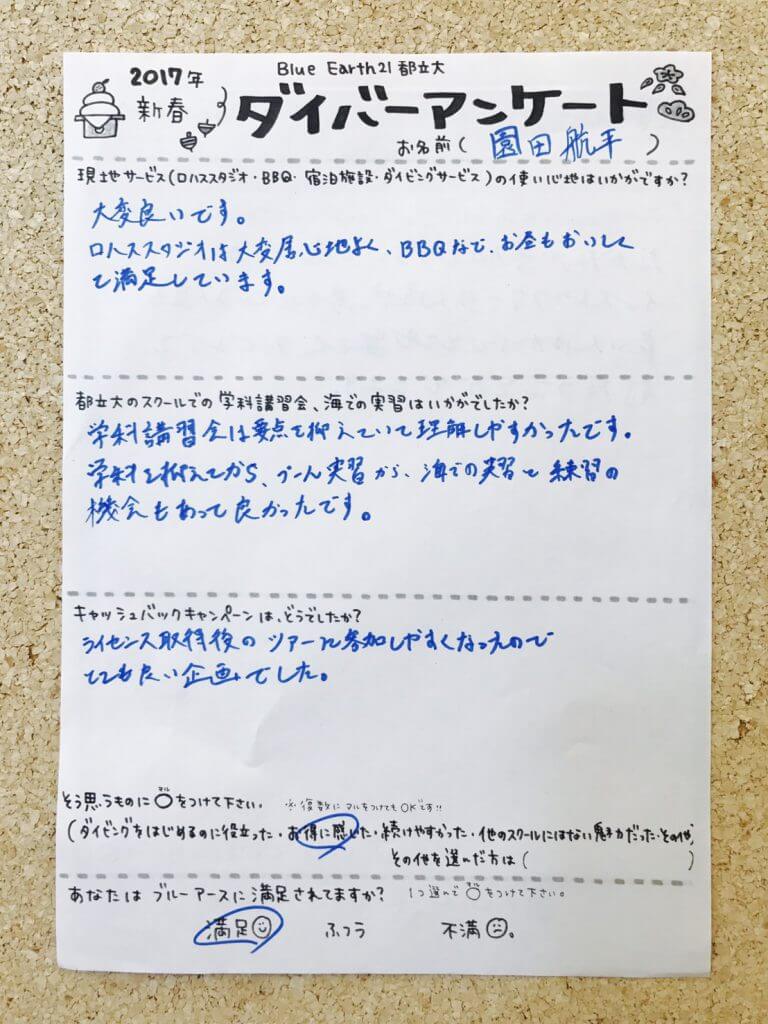 Blue Earth21 都立大
2017年
新春
ダイバーアンケート
お名前( 園田航平 )
現地サービス(ロハススタジオ・BBQ・宿泊施設・ダイビングサービス)の使い心地はいかがですか?
大変良いです。
ロハススタジオは大変居心地よく、BBQなど、お昼もおいしく
て満足しています。
都立大のスクールでの学科講習会、海での実習はいかがでしたか?
学科講習会は要点を抑えていて理解しやすかったです。
学科を抑えてから、プール実習から、海での実習と練習の
機会もあって良かったです。
キャッシュバックキャンペーンは、どうでしたか?
ライセンス取得後のツアーに参加しやすくなったので
とても良い企画でした。
そう思うものに○をつけて下さい。 ※複数にマルをつけてもOKです!!
マル
(ダイビングをはじめるのに役立った・お得に感じた・続けやすかった・他のスクールにはない魅力だった・その他)
その他を選んだ方は( )
あなたはブルーアースに満足されてますか? 1つ選んで○をつけて下さい。
マル
満足 ふつう 不満。